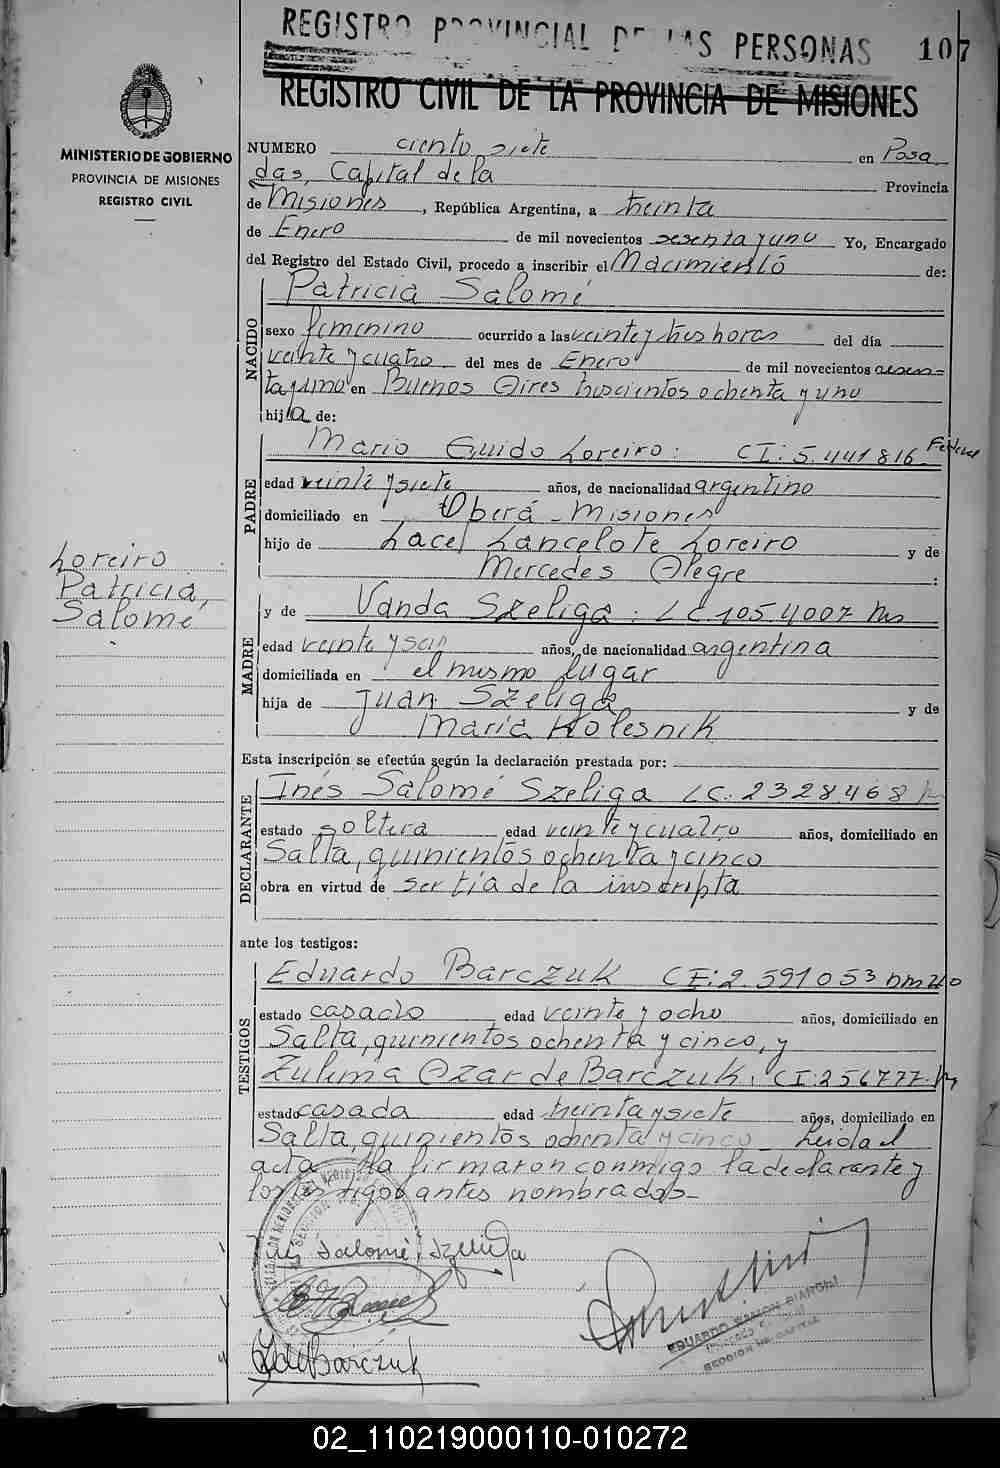 REGISTRO PROVINCIAL DE LAS PERSONAS
107
REGISTRO CIVIL DE LA PROVINCIA DE MISIONES
MINISTERIO DE GOBIERNO
PROVINCIA DE MISIONES
REGISTRO CIVIL
NUMERO ciento siete en Posa
das, Capital de la Provincia
de Misiones, República Argentina, a treinta
de Enero de mil novecientos sesenta y uno Yo, Encargado
del Registro del Estado Civil, procedo a inscribir el Nacimiento de:
NACIDO
Patricia Salomé
sexo femenino ocurrido a las veinte y tres horas del día
veinte y cuatro del mes de Enero de mil novecientos sesen=
ta y uno en Buenos Aires trescientos ochenta y uno
hija de:
PADRE
Mario Guido Loreiro: CI: 5.441816 Federal
edad veinte y siete años, de nacionalidad argentino
domiciliado en Oberá - Misiones
hijo de Lacel Lancelote Loreiro y de
Mercedes Alegre :
Loreiro
Patricia,
Salomé
MADRE
y de Vanda Szeliga: LC. 1054007
edad veinte y seis años, de nacionalidad argentina
domiciliada en el mismo lugar
hija de Juan Szeliga y de
María Kolesnik
Esta inscripción se efectúa según la declaración prestada por:
DECLARANTE
Inés Salomé Szeliga LC. 2328468
estado soltera edad veinte y cuatro años, domiciliado en
Salta, quinientos ochenta y cinco
obra en virtud de ser tía de la inscripta
ante los testigos:
TESTIGOS
Eduardo Barczuk CI: 2.591053
estado casado edad veinte y ocho años, domiciliado en
Salta, quinientos ochenta y cinco, y
Zulema Ozar de Barczuk. CI: 256777.
estado casada edad treinta y siete años, domiciliado en
Salta, quinientos ochenta y cinco Leida el
acta la firmaron conmigo la declarante y
los testigos antes nombrados-
Inés Salomé Szeliga
Z de Barczuk
EDUARDO RAMON BIANCHI
02_110219000110-010272